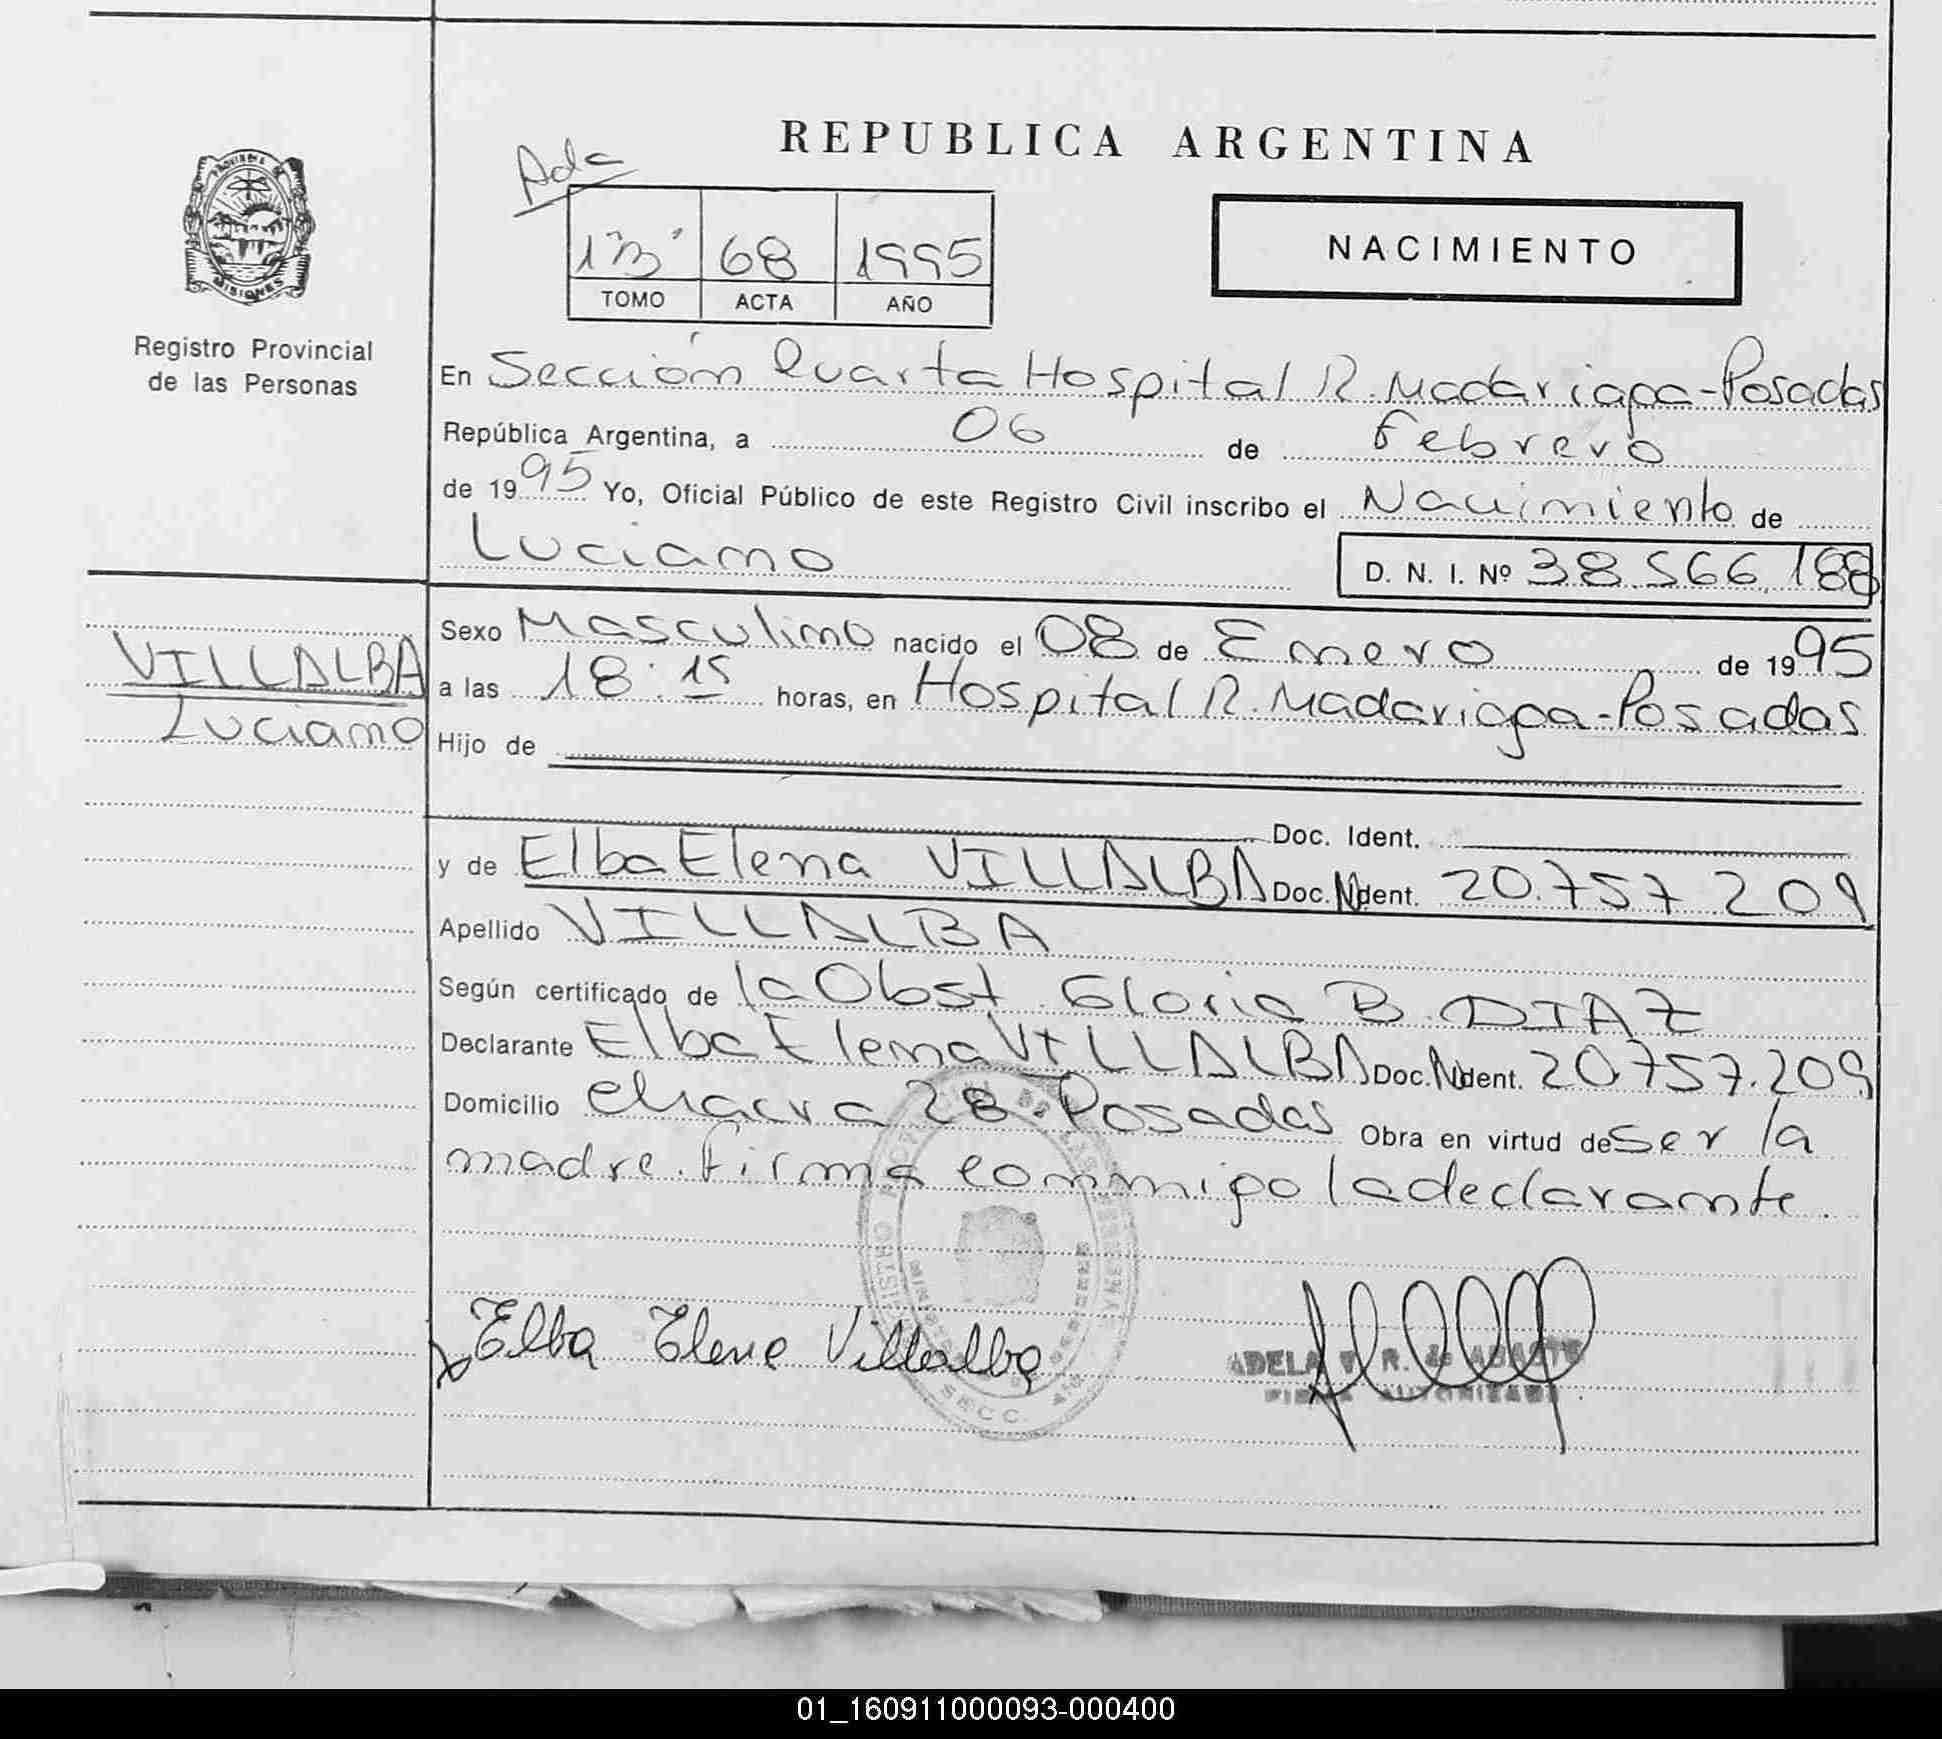 REPUBLICA ARGENTINA
NACIMIENTO
68 1995
TOMO ACTA AÑO
MISIONES
Registro Provincial
de las Personas
En Sección Cuarta Hospital R. Madariaga-Posadas
República Argentina, a 06 de Febrero
de 1995 Yo, Oficial Público de este Registro Civil inscribo el Nacimiento de
Luciano
D. N. I. Nº 38.566.188
VILLALBA
Luciano
Sexo Masculino nacido el 08 de Enero de 1995
a las 18:15 horas, en Hospital R. Madariaga-Posadas
Hijo de
Doc. Ident.
y de Elba Elena VILLALBA Doc. Ident. 20.757.209
Apellido VILLALBA
Según certificado de la Obst. Gloria B. DIAZ
Declarante Elba Elena VILLALBA Doc. Ident. 20.757.209
Domicilio Chacra 28-Posadas Obra en virtud de ser la
madre. Firma conmigo la declarante.
Elba Elena Villalba
ADELA R. de
SECC.
01_160911000093-000400